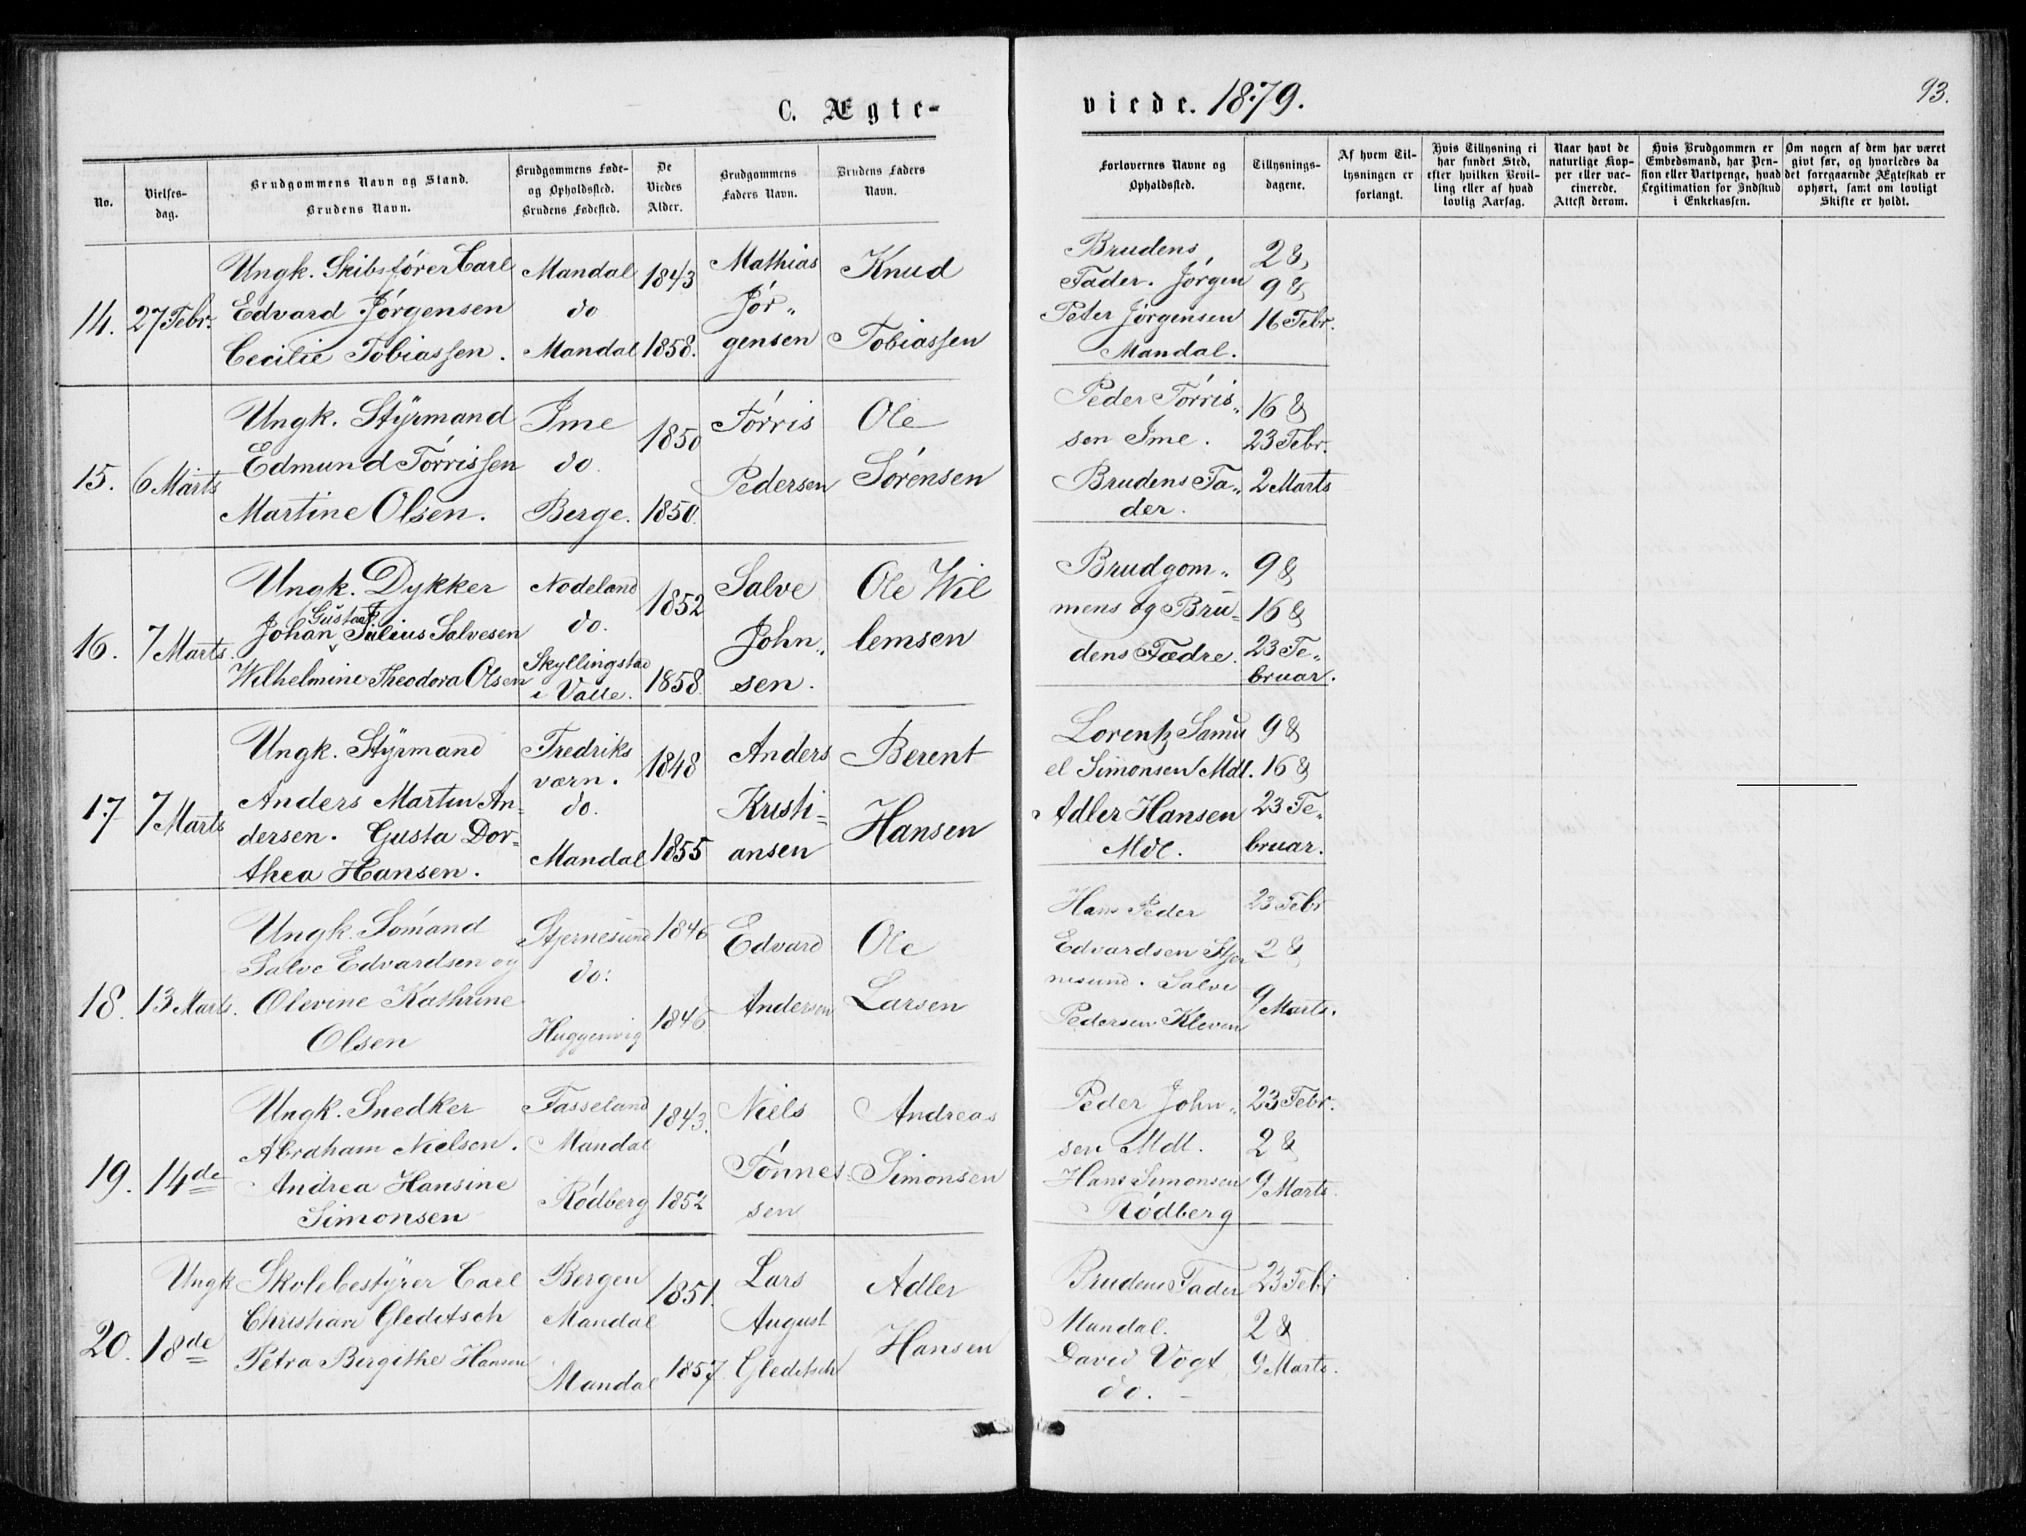 C. Ægte-
No.
Vielses-
dag.
Brudgommens Navn og Stand.
Brudens Navn.
Brudgommens Føde-
og Opholdssted.
Brudens Fødested.
De
Viedes
Alder.
Brudgommens
Faders Navn.
Brudens Faders
Navn.
14. 27 Febr.
Ungk. Skibsfører Carl
Edvard Jørgensen
Cecilie Tobiassen.
Mandal
do
Mandal
1843
1858.
Mathias
Jør„
gensen
Knud
Tobiassen
15. 6 Marts
Ungk. Styrmand
Edmund Tørrissen
Martine Olsen.
Ime
do.
Berge.
1850
1850.
Tørris
Pedersen
Ole
Sørensen
16. 7 Marts.
Ungk. Dykker
Gustav
Johan Julius Salvesen
Wilhelmine Theodora Olsen
Nodeland
do.
Skyllingstad
i Valle.
1852
1858.
Salve
John„
sen.
Ole Wil
lemsen
17 7 Marts
Ungk. Styrmand
Anders Martin An-
dersen. Gusta Dor-
thea Hansen.
Fredriks
værn.
do.
Mandal
1848
1855
Anders
Kristi-
ansen
Berent
Hansen
18. 13 Marts.
Ungk. Sømand
Salve Edvardsen og
Olevine Kathrine
Olsen
Stjernesund
do.
Huggenvig
1846
1846
Edvard
Andersen
Ole
Larsen
19. 14de
Ungk. Snedker
Abraham Nielsen.
Andrea Hansine
Simonsen
Fasseland
Mandal
Rødberg
1843.
1852
Niels
Tønnes
sen
Andreas
Simonsen
20. 18de
Ungk Skolebestyrer Carl
Christian Gleditsch
Petra Bergithe Hansen
Bergen
Mandal
Mandal
1851.
1857
Lars
August
Gleditsch
Adler
Hansen
viede. 1879.
93.
Forlovernes Navne og
Opholdssted.
Tillysnings-
dagene.
Af hvem Til-
lysningen er
forlangt.
Hvis Tillysning ei
har fundet Sted,
efter hvilken Bevil-
ling eller af hvad
lovlig Aarsag.
Naar havt de
naturlige Kop-
per eller vac-
cinerede.
Attest derom.
Hvis Brudgommen er
Embedsmand, har Pen-
sion eller Vartpenge, hvad
Legitimation for Indskud
i Enkekassen.
Om nogen af dem har været
givt før, og hvorledes da
det foregaaende Ægteskab er
ophørt, samt om lovligt
Skifte er holdt.
Brudens
Fader. Jørgen
Peter Jørgensen
Mandal.
2 &
9 &
16 Febr.
Peder Tørris„
sen Ime.
Brudens Fa„
der.
16 &
23 Febr.
2 Marts
Brudgom„
mens og Bru-
dens Fædre.
9 &
16 &
23 Fe„
bruar.
Lorentz Samu
el Simonsen Mdl.
Adler Hansen
Mdl.
9 &
16 &
23 Fe„
bruar.
Hans Peder
Edvardsen Stjer
nesund. Salve
Pedersen Kleven
23 Febr
2 &
9 Marts.
Peder John„
sen Mdl.
Hans Simonsen
Rødberg
23 Febr.
2 &
9 Marts.
Brudens Fader
Mandal.
David Vogt
do. -
23 Febr
2 &
9 Marts.